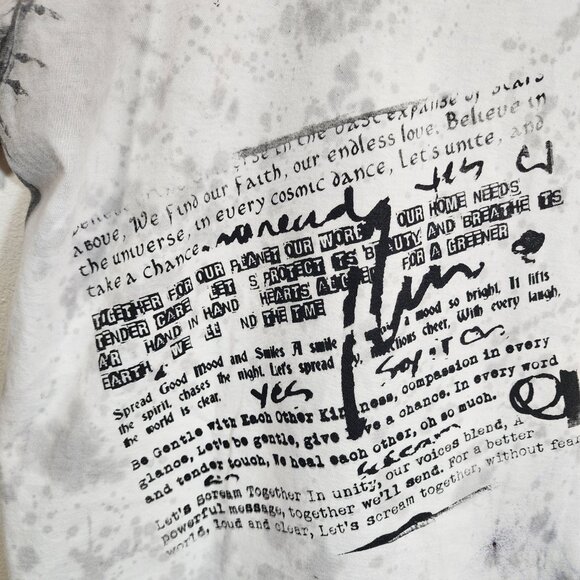 in the vast expanse of stars
above, We find our faith, our endless love. Believe in
the universe, in every cosmic dance, Let's unite, and
take a chance.
yes
TOGETHER FOR OUR PLANET OUR WORK OUR HOME NEEDS
TENDER CARE LET S PROTECT ITS BEAUTY AND BREATHE ITS
AIR HAND IN HAND HEARTS FOR A GREENER
EARTH WE ND THE TIME
Spread Good Mood and Smiles A smile a mood so bright. It lifts
the spirit, chases the night. Let's spread cheer. With every laugh,
the world is clear.
yes
Be Gentle with Each Other Kindness, compassion in every
glance, Let's be gentle, give a chance. In every word
and tender touch, We heal each other, oh so much.
Let's Scream Together In unity, our voices blend, A
powerful message, together we'll send. For a better
world, loud and clear, Let's scream together, without fear